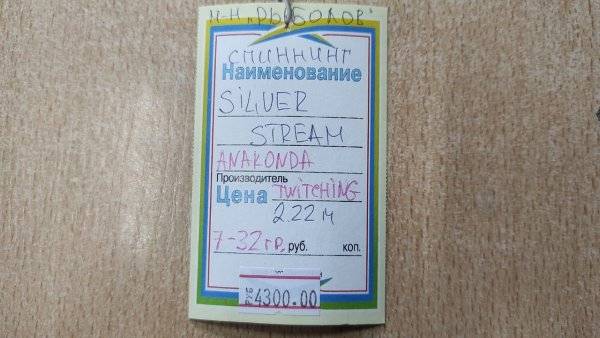 м-н „РЫБОЛОВ"
спиннинг
Наименование
SILVER
STREAM
ANAKONDA
Производитель
Цена TWITCHING
2.22 м
7-32 гр. руб. коп.
РУБ 4300.00